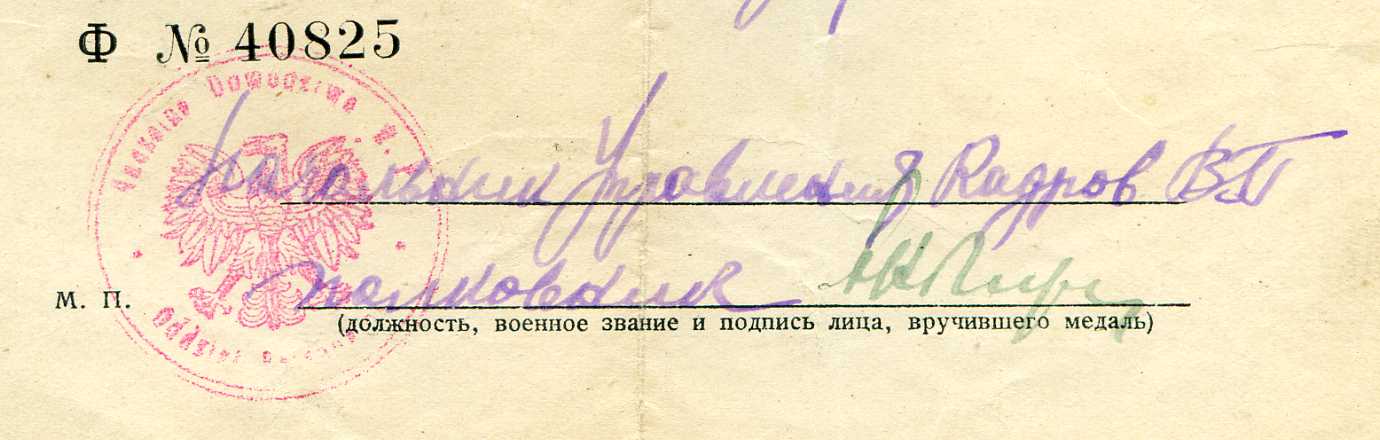 Ф № 40825
Naczelne Dowództwo W. P.
Начальник Управления Кадров ВП
полковник
М. П.
(должность, военное звание и подпись лица, вручившего медаль)